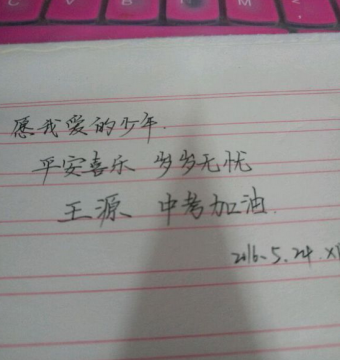 愿我爱的少年.
平安喜乐 岁岁无忧
王源 中考加油.
2016.5.24.